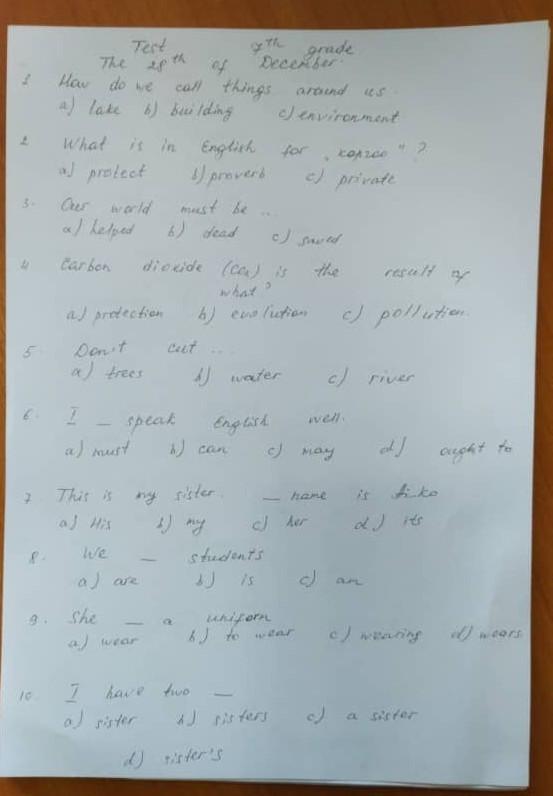 Test 7th grade
The 28th of December.
1 How do we call things around us.
a) lake b) building c) environment
2 What is in English for "коргоо"?
a) protect b) proverb c) private
3. Our world must be ...
a) helped b) dead c) saved
4 Carbon dioxide (CO2) is the result of
what?
a) protection b) evolution c) pollution.
5. Don't cut ...
a) trees b) water c) river
6. I _ speak English well.
a) must b) can c) may d) ought to
7 This is my sister. _ name is Ai-ko
a) His b) my c) her d) its
8. We _ students
a) are b) is c) am
9. She _ a uniform
a) wear b) to wear c) wearing d) wears
10. I have two _
a) sister b) sisters c) a sister
d) sister's